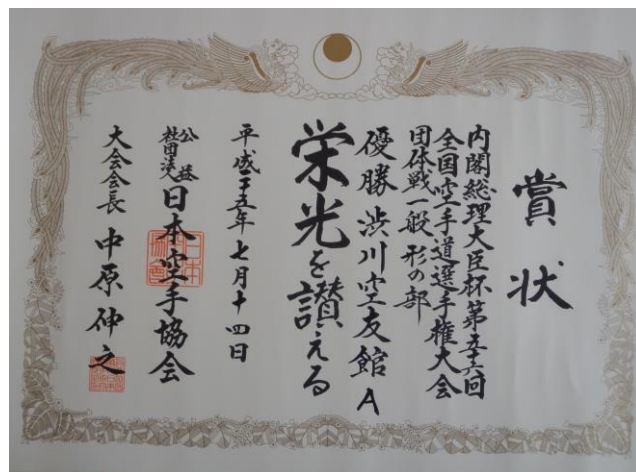 賞状
内閣総理大臣杯第五十六回
全国空手道選手権大会
団体戦一般 形の部
優勝 渋川空友館 A
栄光を讃える
平成二十五年七月十四日
公益社団法人 日本空手協会
大会会長 中原伸之